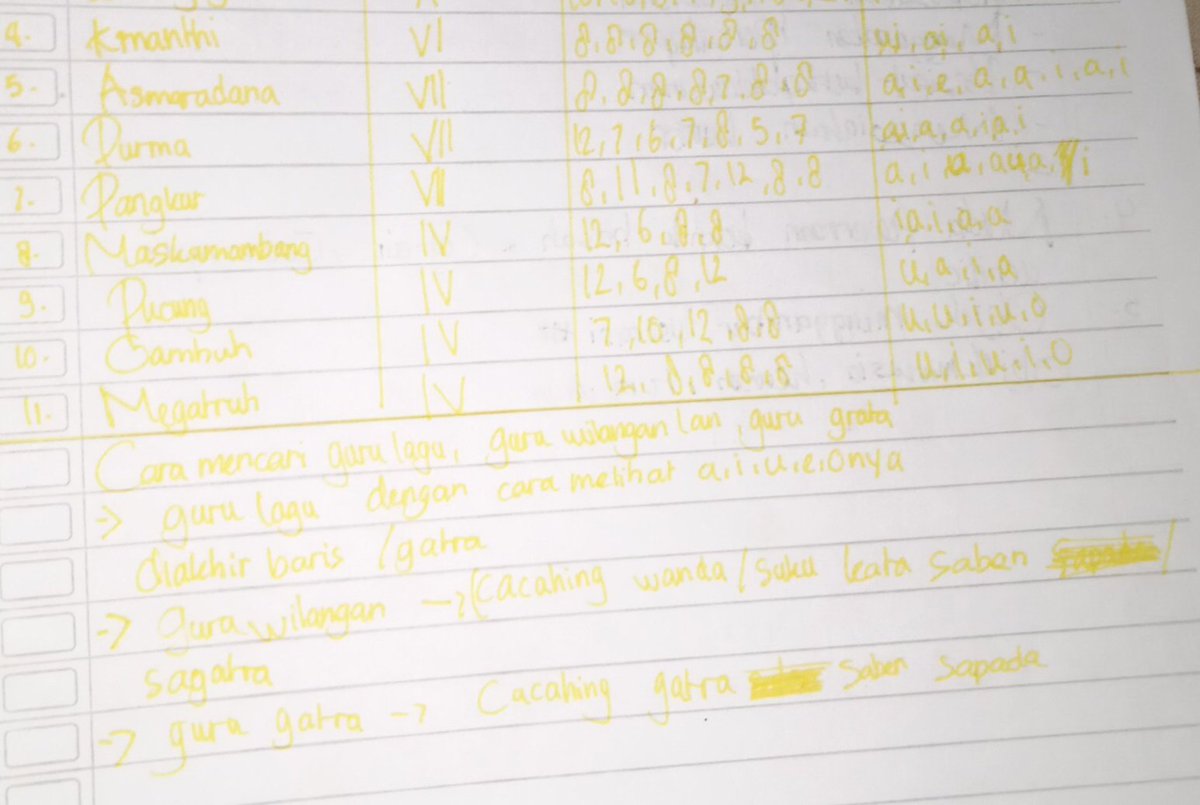 4. Kinanthi VI 8,8,8,8,8,8 u,i,a,i,a,i
5. Asmaradana VII 8,8,8,8,7,8,8 a,i,e,a,a,i,a,i
6. Durma VII 12,7,6,7,8,5,7 a,i,a,a,i,a,i
7. Pangkur VII 8,11,8,7,12,8,8 a,i a,a,u,a, i
8. Maskumambang IV 12,6,8,8 i,a,i,a,a
9. Pucung IV 12,6,8,12 u,a,i,a
10. Gambuh IV 7,10,12,8,8 u,u,i,u,o
11. Megatruh IV 12,8,8,8,8 u,i,u,i,o
Cara mencari guru lagu, guru wilangan lan, guru grata
-> guru lagu dengan cara melihat a,i,u,e,onya
diakhir baris / gatra
-> guru wilangan -> (cacahing wanda / suku kata saben /
sagatra
-> guru gatra -> Cacahing gatra saben sapada